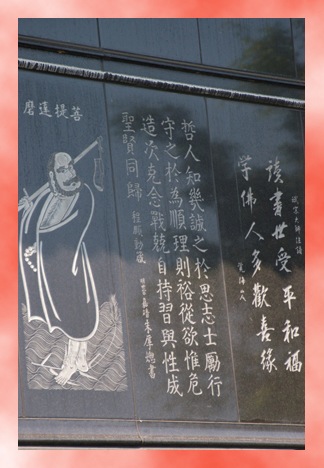 讀書世受平和福
學佛人多歡喜緣
哲人知幾誠之於思志士勵行
守之於為順理則裕從欲惟危
造次克念戰兢自持習與性成
聖賢同歸 程頤動箴
明世宗 嘉靖 朱厚熜書
菩提達磨